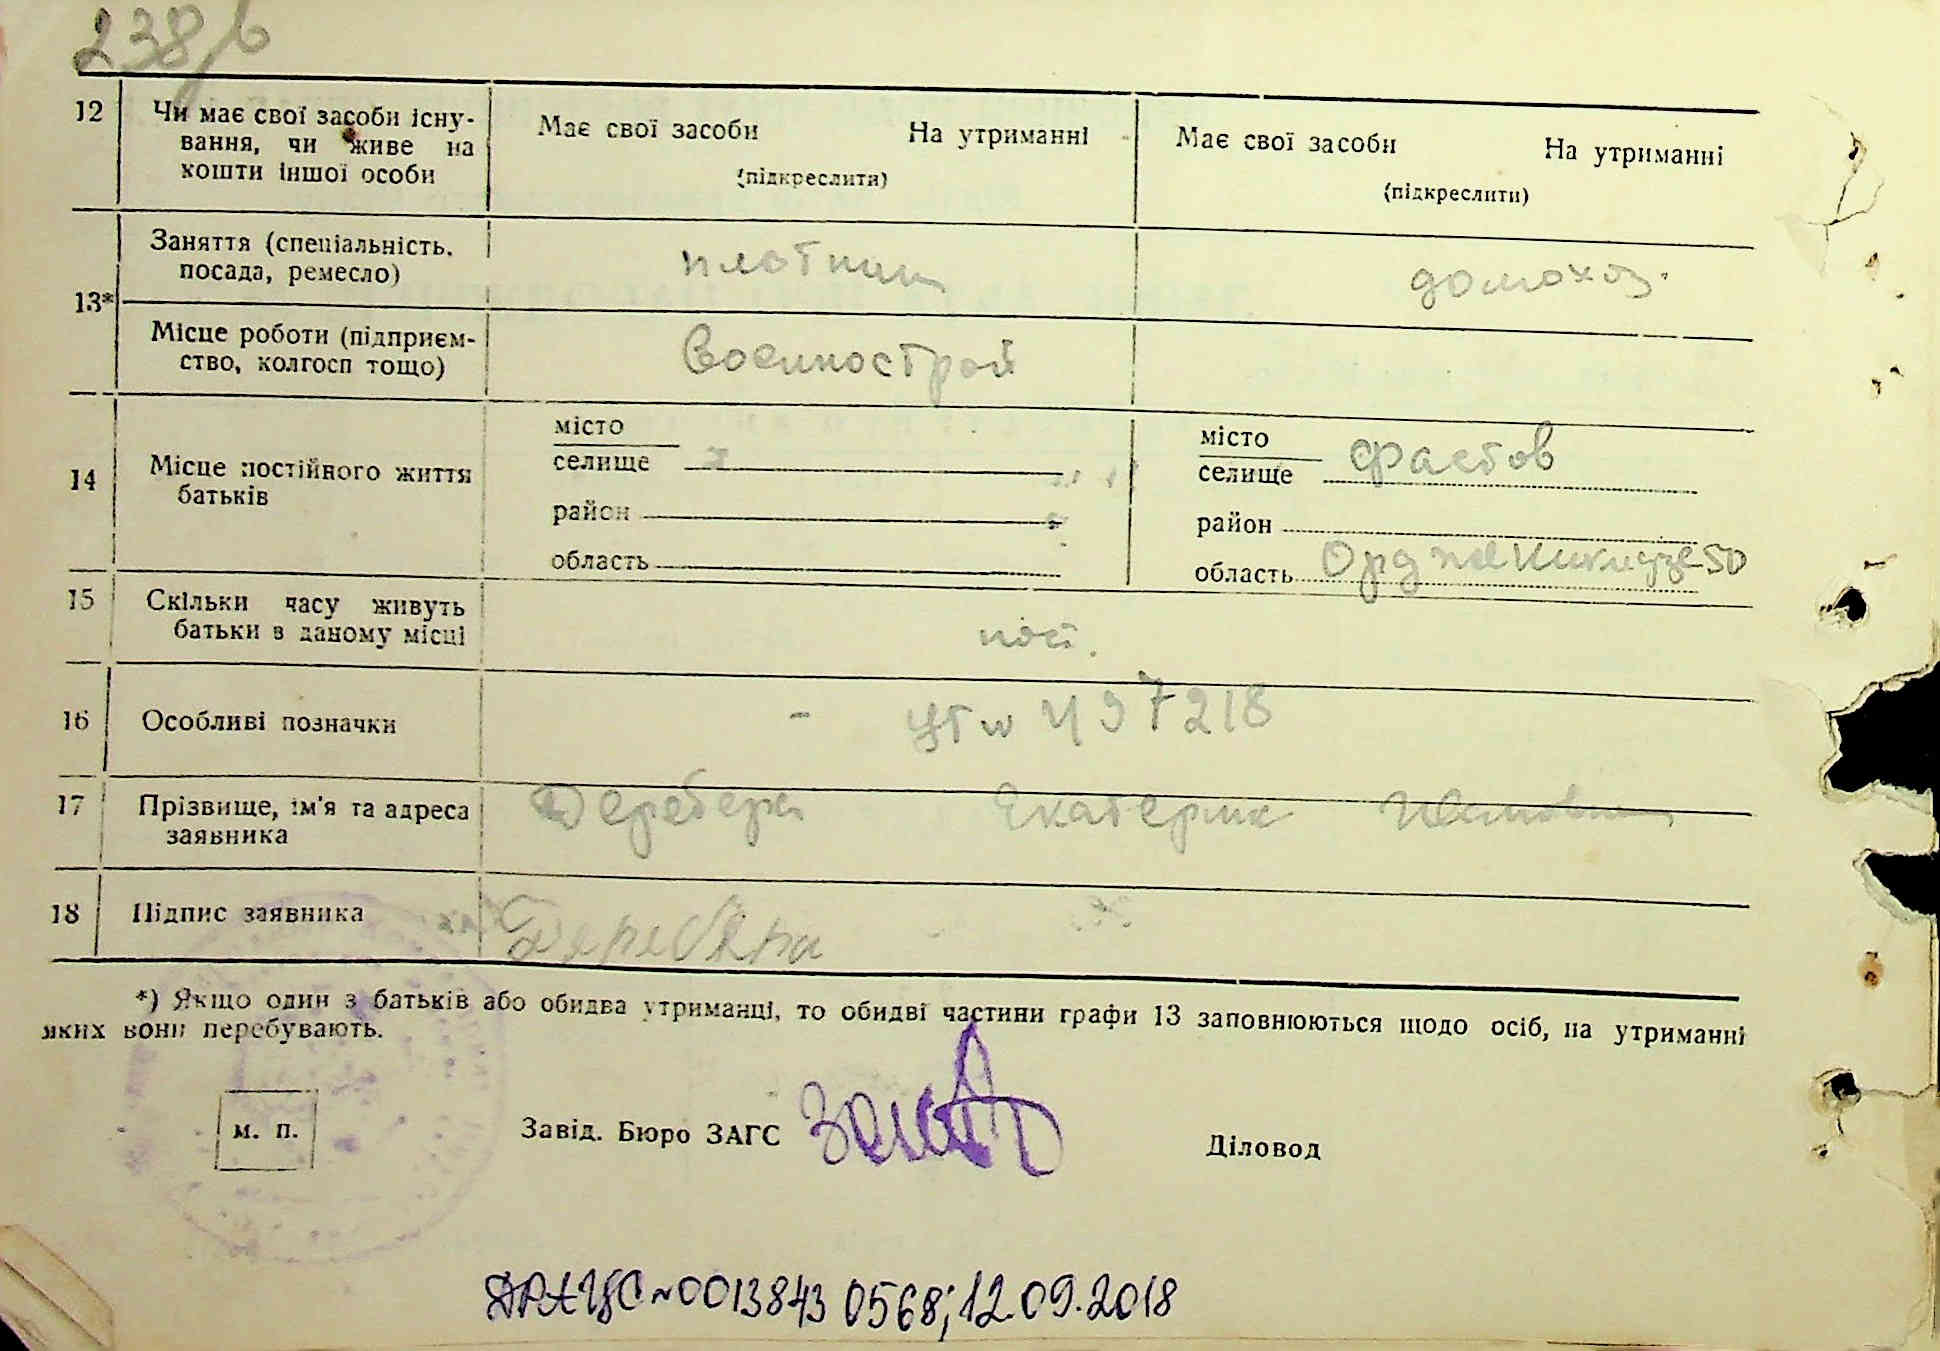 238
12
Чи має свої засоби існу-
вання, чи живе на
кошти іншої особи
Має свої засоби На утриманні
(підкреслити)
Має свої засоби На утриманні
(підкреслити)
13*
Заняття (спеціальність,
посада, ремесло)
плотник
домохоз.
Місце роботи (підприєм-
ство, колгосп тощо)
Военнострой
14
Місце постійного життя
батьків
місто
селище
район
область
місто
селище Фастов
район
область Орджоникидзе 50
15
Скільки часу живуть
батьки в даному місці
пост.
16
Особливі позначки
- 437218
17
Прізвище, ім'я та адреса
заявника
Деребера Екатерина Ивановна
18
Підпис заявника
Деребера
*) Якщо один з батьків або обидва утриманці, то обидві частини графи 13 заповнюються щодо осіб, на утриманні
яких вони перебувають.
м. п.
Завід. Бюро ЗАГС
Діловод
ДРАЦС №0013843 0568; 12.09.2018